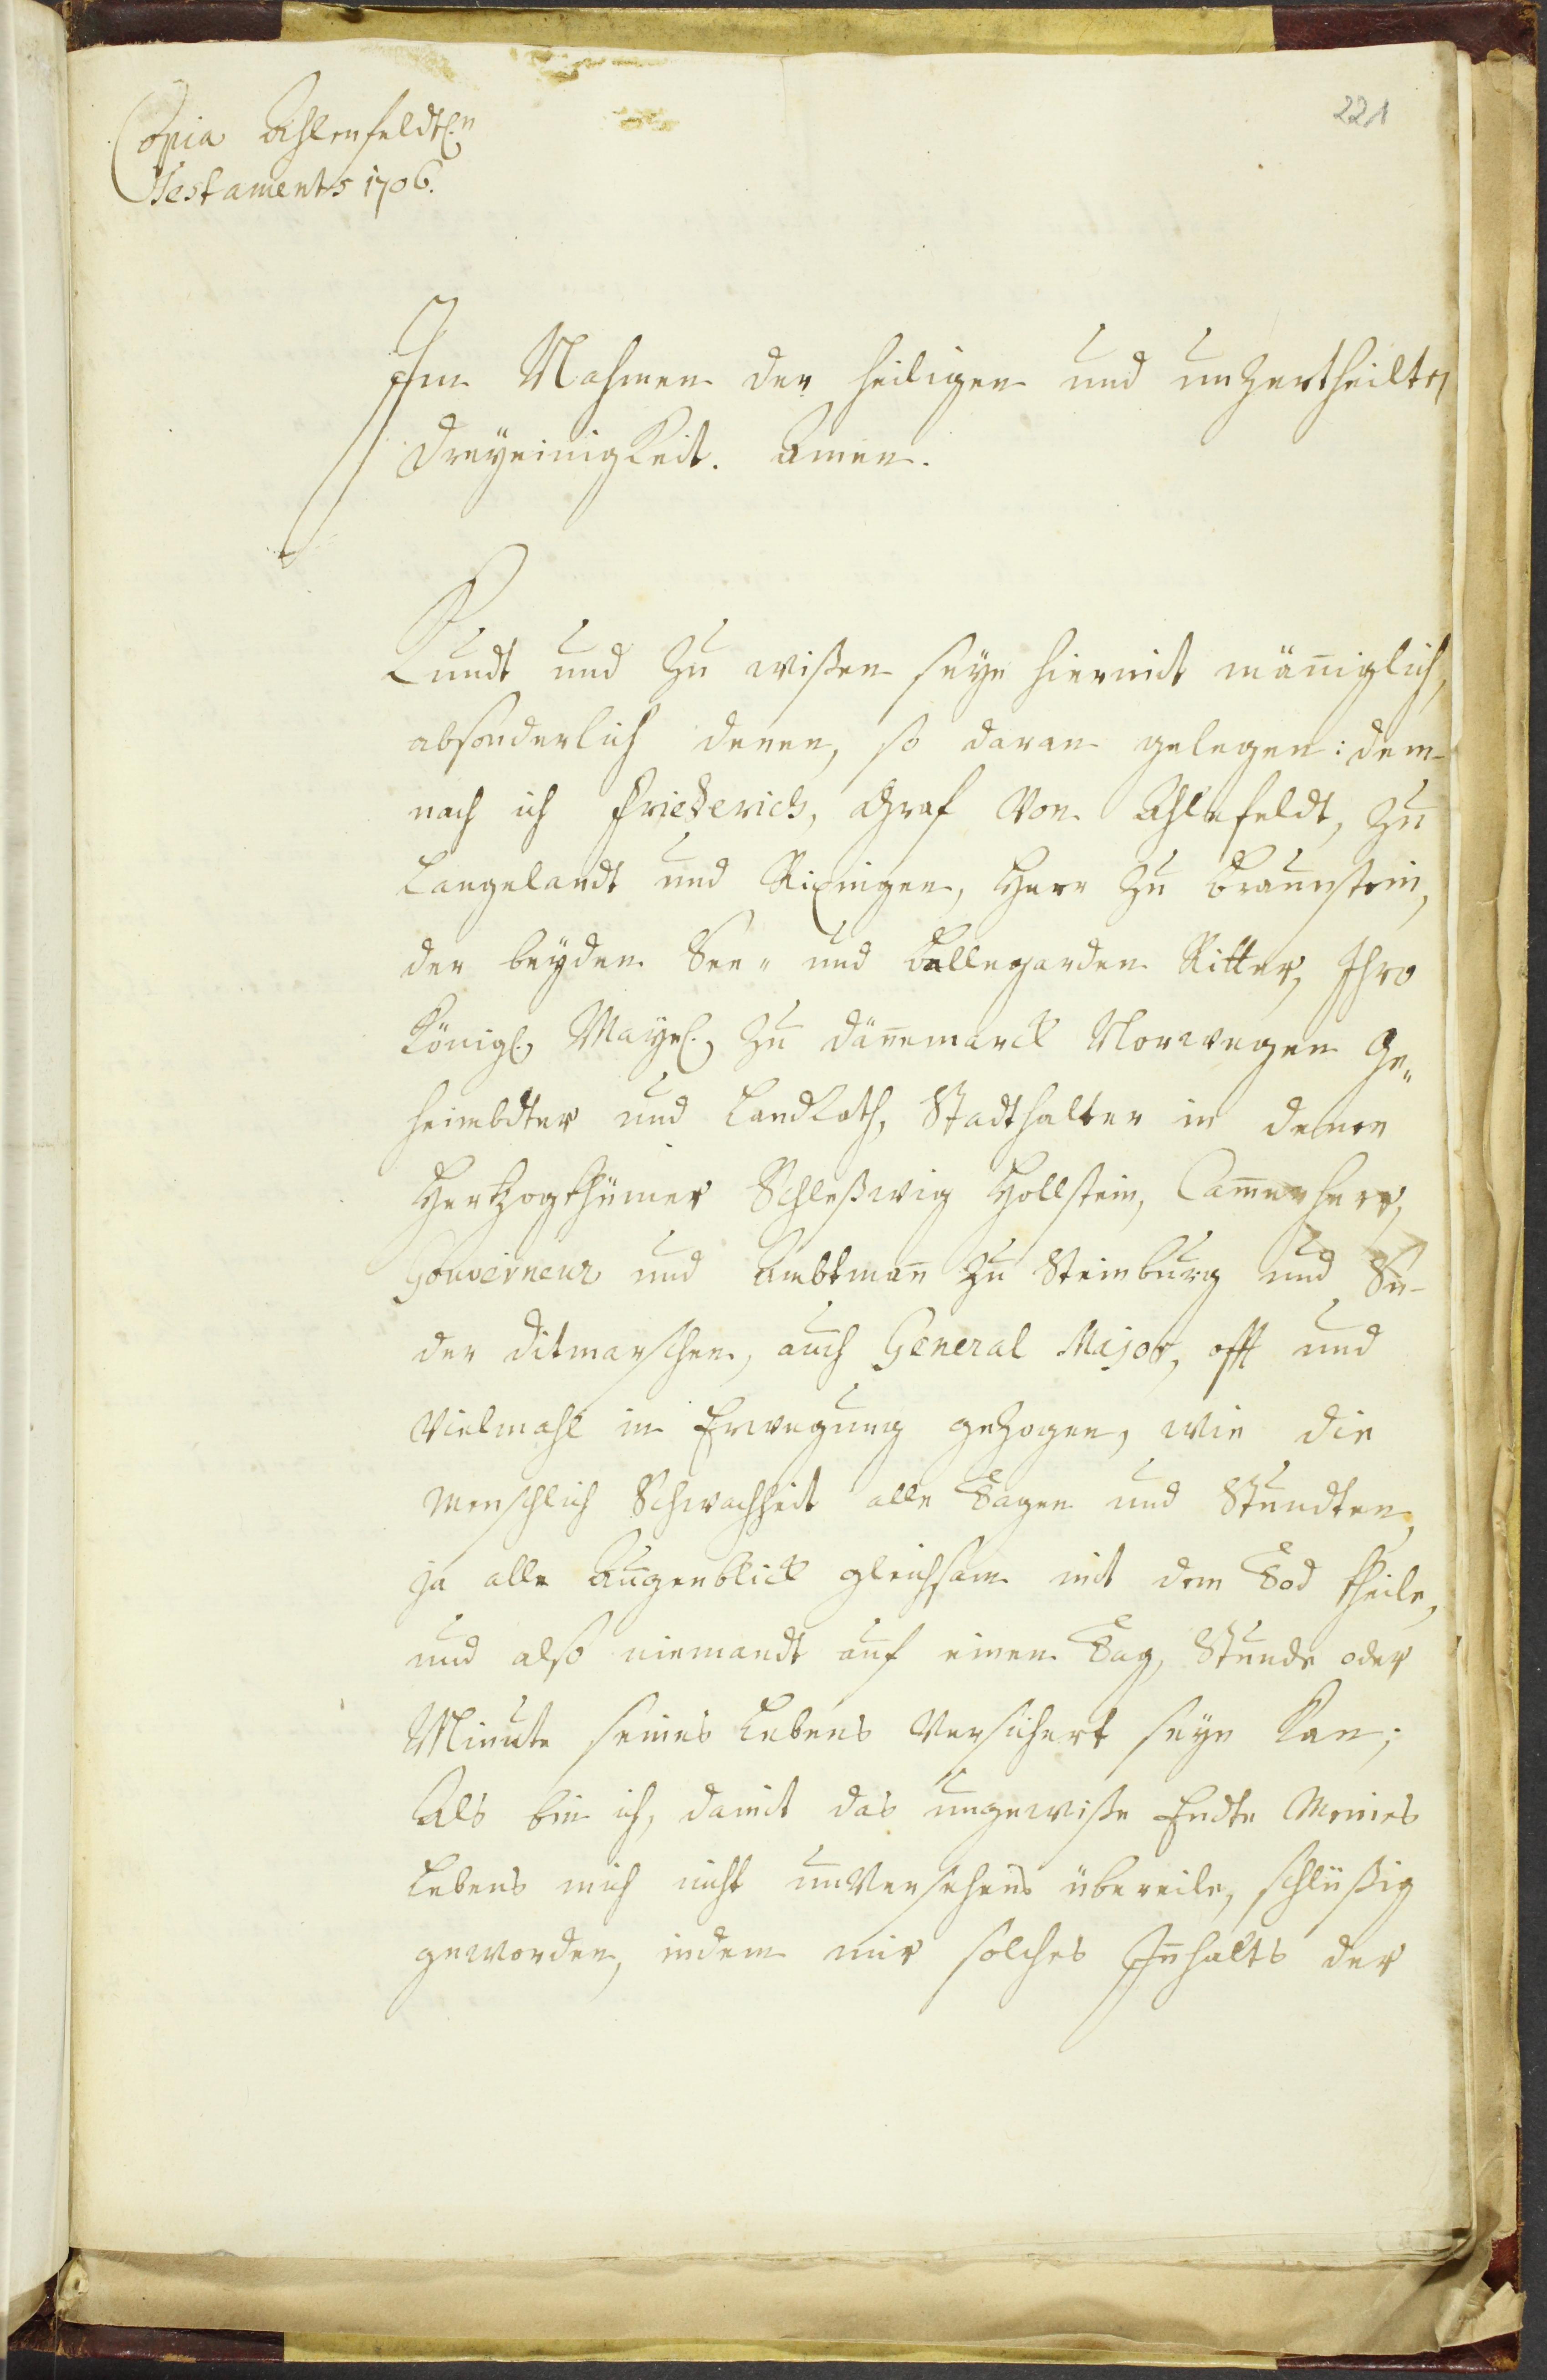 221
Copia Ahlenfeldtl.n
Testaments 1706.
Im Nahmen der heiligen und unzertheilten
Dreyeinigkeit. Amen.
Kundt und zu wißen seye hiermit mäniglich,
absonderlich denen, so daran gelegen: dem-
nach ich Friederich, Graf von Ahlefeldt, zu
Langelandt und Rixingen, Herr zu Braunstein,
der beyden See- und Ballegarden Ritter, Ihro
Königl. Mayest. zu Dänemarck Norwegen Ge-
heimbdter und Landrath, Stadthalter in denen
Hertzogthümer Schleßwig Hollstein, Camerherr,
Gouverneur und Ambtman zu Steinburg und Sü-
der Ditmarschen, auch General Major, offt und
vielmahl in Erwegung gezogen, wie die
menschlich Schwachheit alle Tagen und Stundten,
ja alle Augenblick gleichsam mit dem Tod theile,
und also niemandt auf einen Tag, Stunde oder
Minute seines Lebens versichert seye kan;
Als bin ich, damit das ungewiße Endte meines
Lebens mich nicht unversehens übereile, schlüßig
geworden, indem mir solches Inhalts der